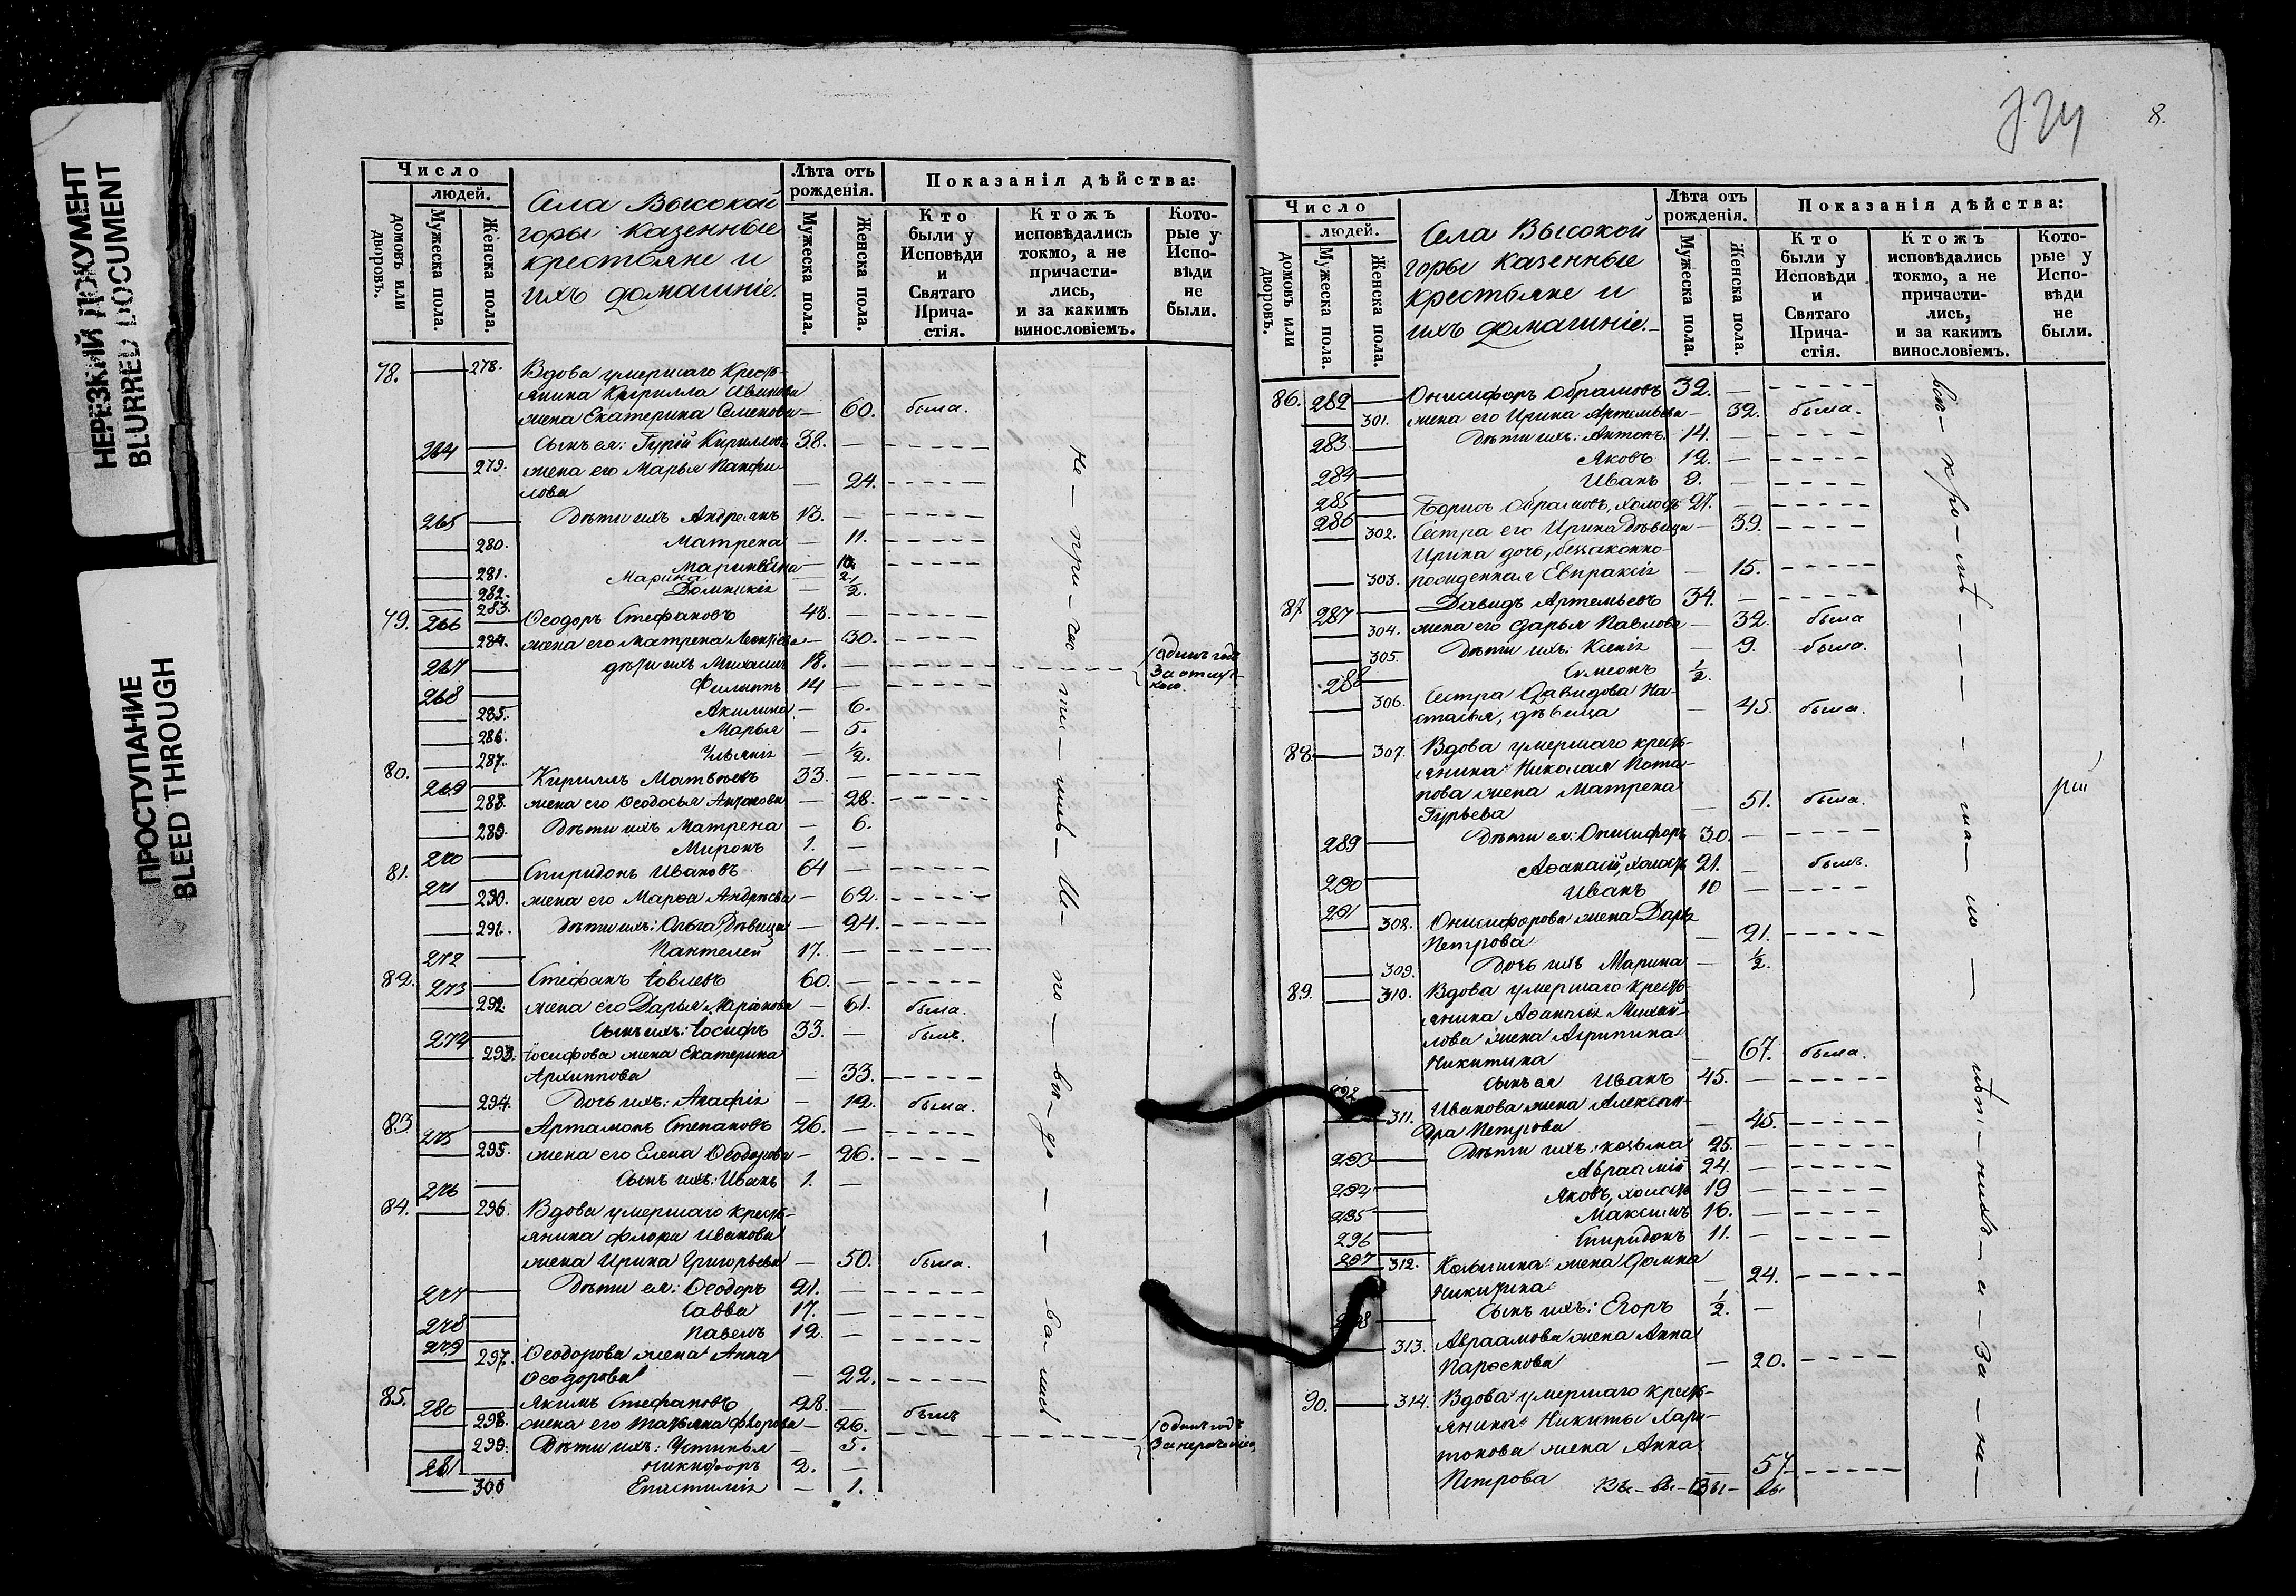 НЕРЕЗКИЙ ДОКУМЕНТ
BLURRED DOCUMENT
ПРОСТУПАНИЕ
BLEED THROUGH
Число
людей.
домовъ или дворовъ.
Мужеска пола.
Женска пола.
Села Высокой
горы казенные
крестьяне и
ихъ домашніе.
Лѣта отъ
рожденія.
Мужеска пола.
Женска пола.
Показанія дѣйства:
Кто
были у
Исповѣди
и
Святаго
Прича-
стія.
Ктожъ
исповѣдались
токмо, а не
причасти-
лись,
и за какимъ
винословіемъ.
Кото-
рые у
Испо-
вѣди
не
были.
78. 278. Вдова умершаго Кресть-
янина Кирилла Иванова
жена Екатерина Семенова — 60. была.
264 Сынъ ея: Гурій Кирилловъ 38. —
279. жена его Марья Панфи-
лова — 24.
265 Дѣти ихъ Андреянъ 13. —
280. Матрена — 11.
281.
282. Марина — 2.
283. Домникія — ½.
79. 266 Ѳеодоръ Стефановъ 48. —
284. жена его Матрена Леонтіева — 30.
267 дѣти ихъ Михаилъ 18. — Одинъ годъ
За отлуч-
кою.
268 Филиппъ 14 —
285. Акилина — 6.
286. Марья — 5.
287. Ульянія — ½.
80. 269 Кириллъ Матвѣевъ 33. —
288. жена его Ѳеодосья Антонова — 28.
289. Дѣти ихъ Матрена — 6.
270 Миронъ 1. —
81. 271 Спиридонъ Ивановъ 64 —
290. жена его Марѳа Андреева — 62.
291. Дѣти ихъ: Ольга, Дѣвица — 24.
272 Пантелей 17. —
82. 273 Стефанъ Іовлевъ 60. —
292. жена его Дарья — 61. была.
274 Сынъ ихъ: Іосифъ 33. — былъ.
293. Іосифова жена Екатерина
Архиппова — 33.
294. Дочь ихъ: Агафія — 12. была.
83 275 Артамонъ Степановъ 26. —
295. жена его Елена Ѳеодорова — 26.
276 Сынъ ихъ: Иванъ 1. —
84. 296. Вдова умершаго кресть-
янина Флора Иванова
жена Ирина Григорьева — 50. была.
277 Дѣти ея: Ѳеодоръ 21. —
278 Савва 17. —
279 Павелъ 12. —
297. Ѳеодорова жена Анна
Ѳеодорова — 22.
85. 280 Якимъ Стефановъ 28. — былъ
298. жена его Татьяна Флорова — 26. Одинъ годъ
299. Дѣти ихъ: Устинья — 5.
281 Никифоръ 2. —
300 Епистимія — 1.
Не — при — час — ти — лись — И — по — во — до — — ва — лись
724
8.
Число
людей.
домовъ или дворовъ.
Мужеска пола.
Женска пола.
Села Высокой
горы казенные
крестьяне и
ихъ домашніе.
Лѣта отъ
рожденія.
Мужеска пола.
Женска пола.
Показанія дѣйства:
Кто
были у
Исповѣди
и
Святаго
Прича-
стія.
Ктожъ
исповѣдались
токмо, а не
причасти-
лись,
и за какимъ
винословіемъ.
Кото-
рые у
Испо-
вѣди
не
были.
86. 282 Онисифоръ Абрамовъ 32. —
301. жена его Ирина Артемьева — 32. была.
283 Дѣти ихъ: Антонъ 14. —
284 Яковъ 12. —
285 Иванъ 9. —
286 Борисъ Абрамовъ, холостъ 27. —
302. Сестра его Ирина Дѣвица — 39.
Ирина дочь, беззаконно-
303. рожденная Евпраксія — 15.
87 287 Давидъ Артемьевъ 34. —
304. жена его Дарья Павлова — 32 была
305. Дѣти ихъ: Ксенія — 9. была.
288 Симеонъ ½.
306. Сестра Давидова На-
стасья, дѣвица — 45. была.
88. 307. Вдова умершаго кресть-
янина Николая Пота-
пова жена Матрена
Гурьева — 51. была.
289 Дѣти ея: Онисифоръ 30. —
290 Аѳанасій, холостъ 21. — былъ.
291 Иванъ 10 —
308. Онисифорова жена Дарья
Петрова — 21.
309. Дочь ихъ Марина — ½.
89. 310. Вдова умершаго кресть-
янина Аѳанасія Михай-
лова жена Агрипина
Никитина — 67. была.
292 Сынъ ея Иванъ 45. —
311. Иванова жена Алексан-
дра Петрова — 45.
293 Дѣти ихъ: Козьма 25. —
294 Авраамій 24. —
295 Яковъ, холостъ 19 —
296 Максимъ 16. —
297 Спиридонъ 11. —
312. Козьмина жена Домна
Никитина — 24.
298 Сынъ ихъ: Егоръ ½. —
313. Авраамова жена Анна
— 20.
90. 314. Вдова умершаго кресть-
янина Никиты Хари-
тонова жена Анна
Петрова — 57